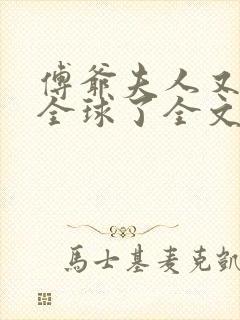 傅爺夫人又
全球了全文
馬士基麦克凱